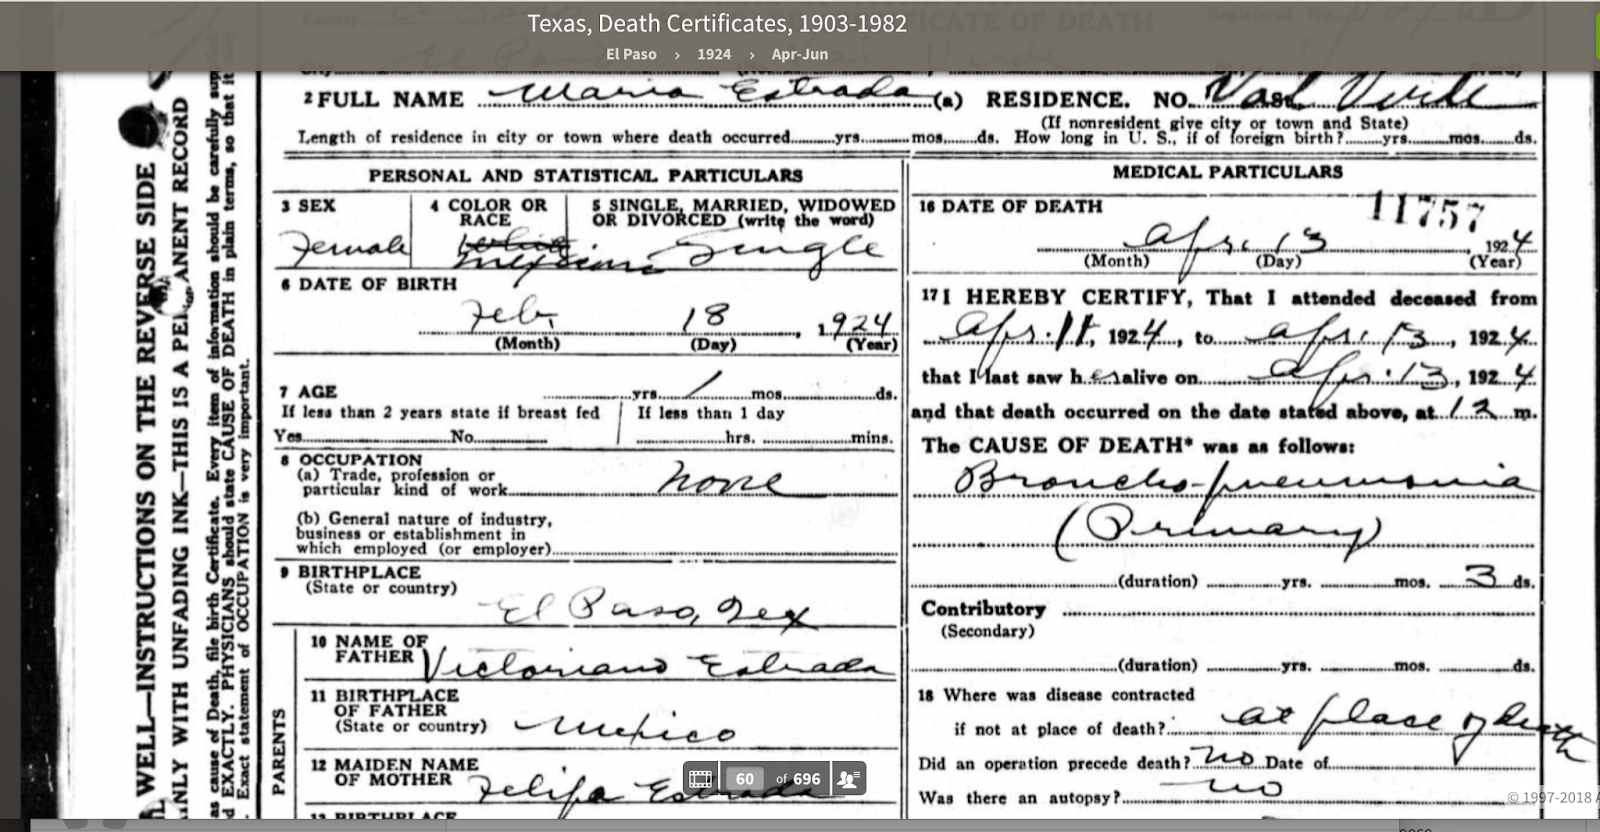 Texas, Death Certificates, 1903-1982
El Paso › 1924 › Apr-Jun
2 FULL NAME Maria Estrada (a) RESIDENCE. NO. Val Verde
(If nonresident give city or town and State)
Length of residence in city or town where death occurred yrs. mos. ds. How long in U. S., if of foreign birth? yrs. mos. ds.
PERSONAL AND STATISTICAL PARTICULARS
3 SEX 4 COLOR OR RACE 5 SINGLE, MARRIED, WIDOWED OR DIVORCED (write the word)
Female White Mexican Single
6 DATE OF BIRTH
Feb. 18, 1924
(Month) (Day) (Year)
7 AGE yrs. 1 mos. ds.
If less than 2 years state if breast fed If less than 1 day
Yes No hrs. mins.
8 OCCUPATION
(a) Trade, profession or
particular kind of work none
(b) General nature of industry,
business or establishment in
which employed (or employer)
9 BIRTHPLACE
(State or country)
El Paso, Tex
PARENTS
10 NAME OF
FATHER Victoriano Estrada
11 BIRTHPLACE
OF FATHER
(State or country) Mexico
12 MAIDEN NAME
OF MOTHER Felipa Estrada
MEDICAL PARTICULARS
16 DATE OF DEATH 11757
Apr. 13 1924
(Month) (Day) (Year)
17 I HEREBY CERTIFY, That I attended deceased from
Apr. 11, 1924, to Apr. 13, 1924
that I last saw her alive on Apr. 13, 1924
and that death occurred on the date stated above, at 12 m.
The CAUSE OF DEATH* was as follows:
Broncho-pneumonia
(Primary)
(duration) yrs. mos. 3 ds.
Contributory
(Secondary)
(duration) yrs. mos. ds.
18 Where was disease contracted
if not at place of death? at place of death
Did an operation precede death? no Date of
Was there an autopsy? no
WELL—INSTRUCTIONS ON THE REVERSE SIDE
NLY WITH UNFADING INK—THIS IS A PERMANENT RECORD
as cause of Death, file birth Certificate. Every item of information should be carefully sup
d EXACTLY. PHYSICIANS should state CAUSE OF DEATH in plain terms, so that it
Exact statement of OCCUPATION is very important.
60 of 696
© 1997-2018 A